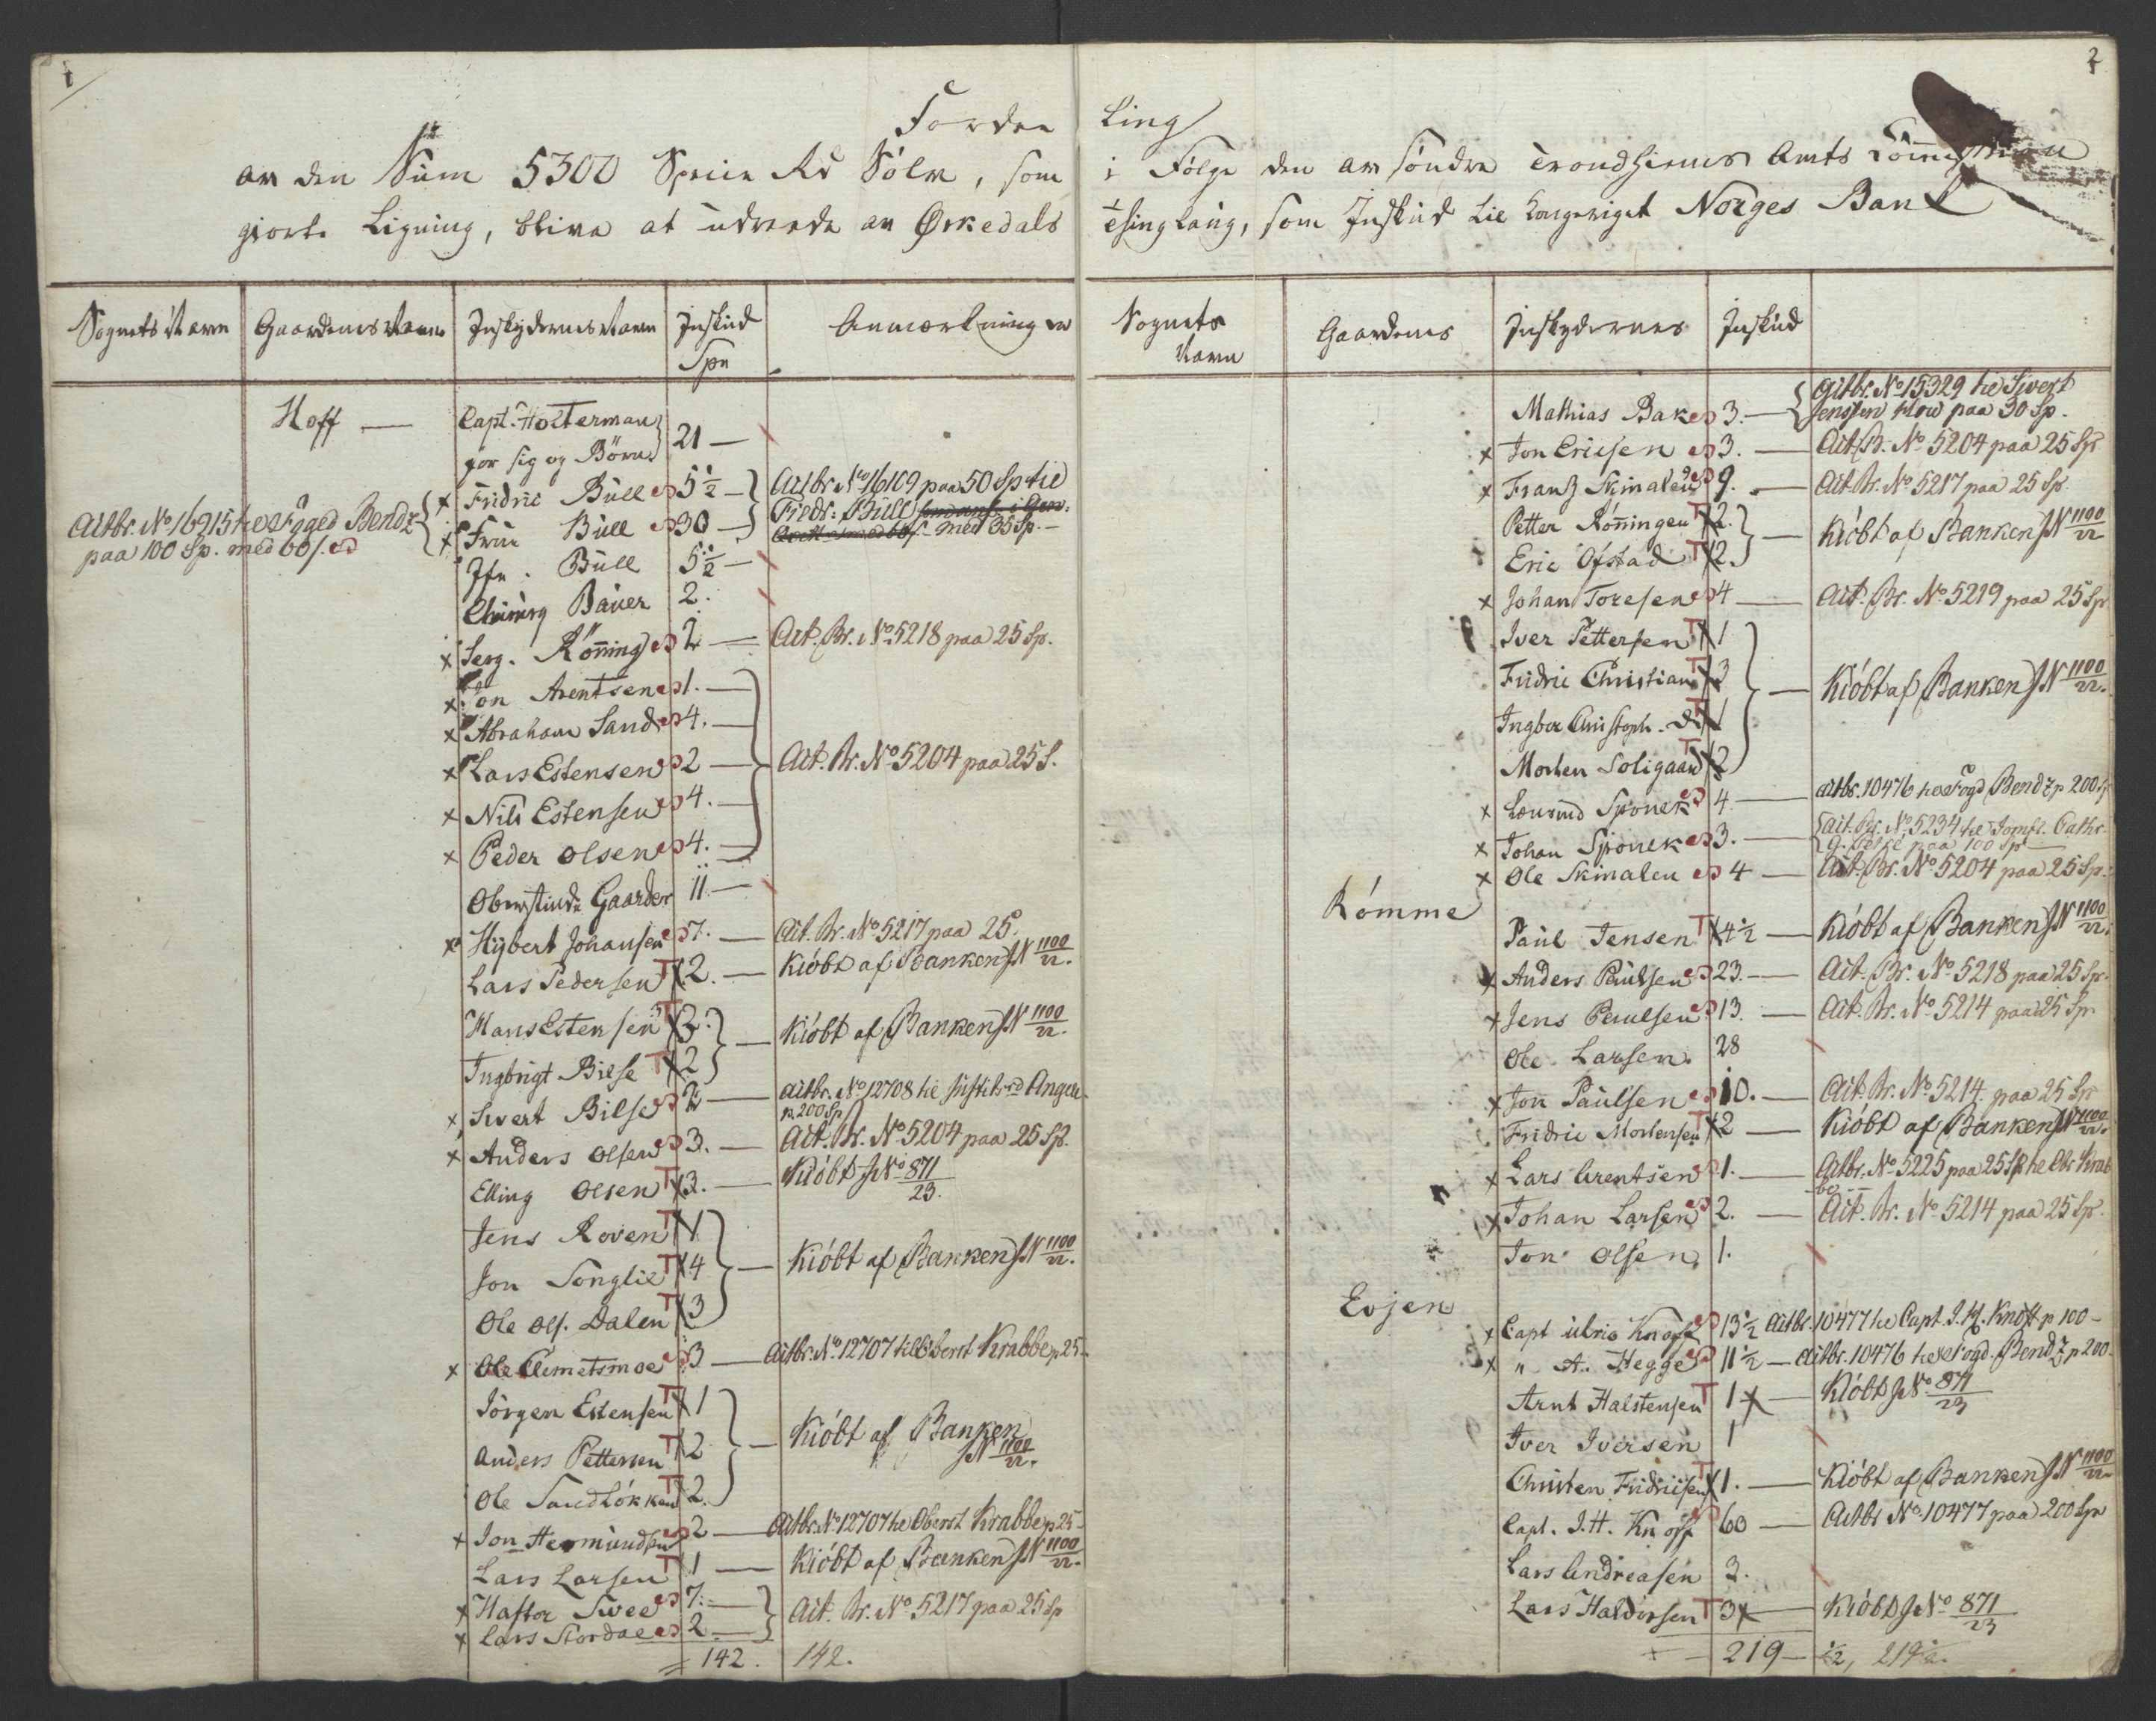 1
Fordee
av den Sum 5300 Specie Rd Sölv, som
giorte Ligning, blive at udrede av Ørkedals
Sognets Navn Gaardenes Navne Inskydernes Navn Inskud Spe Anmærkninger
Hoff — Capt. Holterman
for sig og Börn 21 —
Actbr. No 16915 til Foged Bendz
paa 100 Sp. med 60 s.
x Fridric Büll 5½ — Actbr No 16109 paa 50 Sp til
x Frue Büll 30 — Fredr: Büll
med 35 Sp. —
Jfr. Büll 5½ —
Chirurg Bauer 2.
x Serg. Rönning 2 — Act. Br. No 5218 paa 25 Sp.
x Jon Arentsen 1. —
x Abraham Sand 4. —
x Lars Estensen 2 — Act. Br. No 5204 paa 25 S.
x Nils Estensen 4. —
x Peder Olsen 4. —
Oberstinde Gaarder 11. —
x Hybert Johansen 7. — Act. Br. No 5217 paa 25
Lars Pedersen T x 2. — Kiöbt af Banken JN 1100/22.
Hans Estensen T x 3.
Ingbrigt Bilse T x 2 — Kiöbt af Banken JN 1100/22.
x Sivert Bilse 2 — Actbr. No 12708 til Justitsrd Angell
p. 200 Sp
x Anders Olsen 3. — Act. Br. No 5204 paa 25 Sp.
Elling Olsen T x 3. — Kiöbt JNo 871/23.
Jens Roven T x 1
Jon Songlie T x 4 — Kiöbt af Banken JN 1100/22.
Ole Ols. Dalen T x 3
x Ole Clemetsmoe 3 — Actbr. No 12707 til Oberst Krabbe p 25 —
Jörgen Estensen T x 1
Anders Pettersen T x 2 — Kiöbt af Banken
JN 1100/22.
Ole Sandlökken T x 2.
x Jon Hermundsen 2 — Actbr No 12707 til Oberst Krabbe p 25 —
Lars Larsen T x 1 — Kiöbt af Banken JN 1100/22.
x Haftor Svee 7. —
x Lars Stordal 2 — Act. Br. No 5217 paa 25 Sp
142. 142.
2
Ling
i Fölge den av söndre Trondhiems Amts
Thinglaug, som Inskud til Kongeriget Norges Bank
Sognets Navn Gaardenes Inskydernes Inskud
Mathias Bak 3. — Actbr. No 15329 til Sivert
Jenssen paa 30 Sp.
x Jon Ericsen 3. — Act. Br. No 5204 paa 25 Sp
x Frantz Skinalen 9. — Act. Br. No 5217 paa 25 Sp.
Petter Rönningen T x 2.
Eric Ofstad T x 2. — Kiöbt af Banken JN 1100/22
x Johan Toresen 4 — Act. Br. No 5219 paa 25 Sp
Iver Pettersen T x 1
Fridric Christian T x 3 — Kiöbt af Banken JN 1100/22.
Ingbor Christoph. D. T x 1
Morten Soligaard T x 2
x Sponek 4 — Actbr. 10476 til Fogd Bendz p 200 Sp
x Johan Sponek 3. — Act. Br. No 5234 til Jomfr. Cathr.
paa 100 Sp —
x Ole Skinalen 4 — Act. Br. No 5204 paa 25 Sp.
Römme
Paul Jensen T x 4½ — Kiöbt af Banken JN 1100/22.
x Anders Paulsen 23. — Act. Br. No 5218 paa 25 Sp.
x Jens Paulsen 13. — Act. Br. No 5214 paa 25 Sp.
Ole Larsen. 28
x Jon Paulsen 10. — Act. Br. No 5214. paa 25 Sp
Fridric Mortensen T x 2 — Kiöbt af Banken JN 1100/22.
x Lars Arentsen 1. — Actbr. No 5225 paa 25 Sp. til Obr Krab
be
x Johan Larsen 2. — Act. Br. No 5214 paa 25 Sp.
Jon Olsen 1.
Evjen
x Capt Ulric Knoff 13½ Actbr. 10477 til Capt. J. H. Knoff p 100 —
x " A. Hegge 11½ — Actbr. 10476 til Fogd. Bendz p 200
Arnt Halstensen T 1 x — Kiöbt JNo 871/23
Iver Iversen 1
Christen Fridricsen T x 1. — Kiöbt af Banken JN 1100/22
Capt. J. H. Knoff 60 — Actbr No 10477 paa 200 Sp
Lars Andreasen 3.
Lars Haldorsen T 3 x — Kiöbt JNo 871/23
219 — ½, 219½.